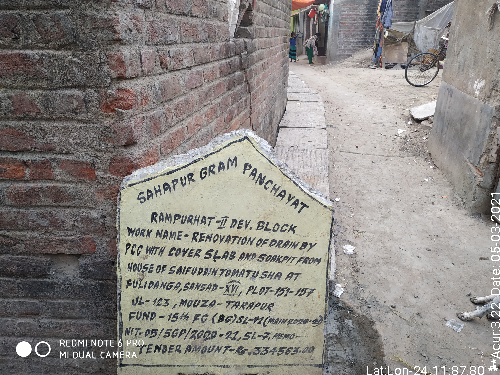 SAHAPUR GRAM PANCHAYAT
RAMPURHAT-II DEV. BLOCK
WORK NAME - RENOVATION OF DRAIN BY
PCC WITH COVER SLAB AND SOAKPIT FROM
HOUSE OF SAIFUDDIN TO MATU SHA AT
FULIDANGA, SANSAD-XVI, PLOT-151-157
JL-123, MOUZA- TARAPUR
FUND - 15th FC (BG) SL-92
NIT-05/SGP/2020-21, SL-7, MEMO-
TENDER AMOUNT-Rs. 334563.00
REDMI NOTE 6 PRO
MI DUAL CAMERA
Date. 05-03-2021
Lat:Lon-24.11:87.80